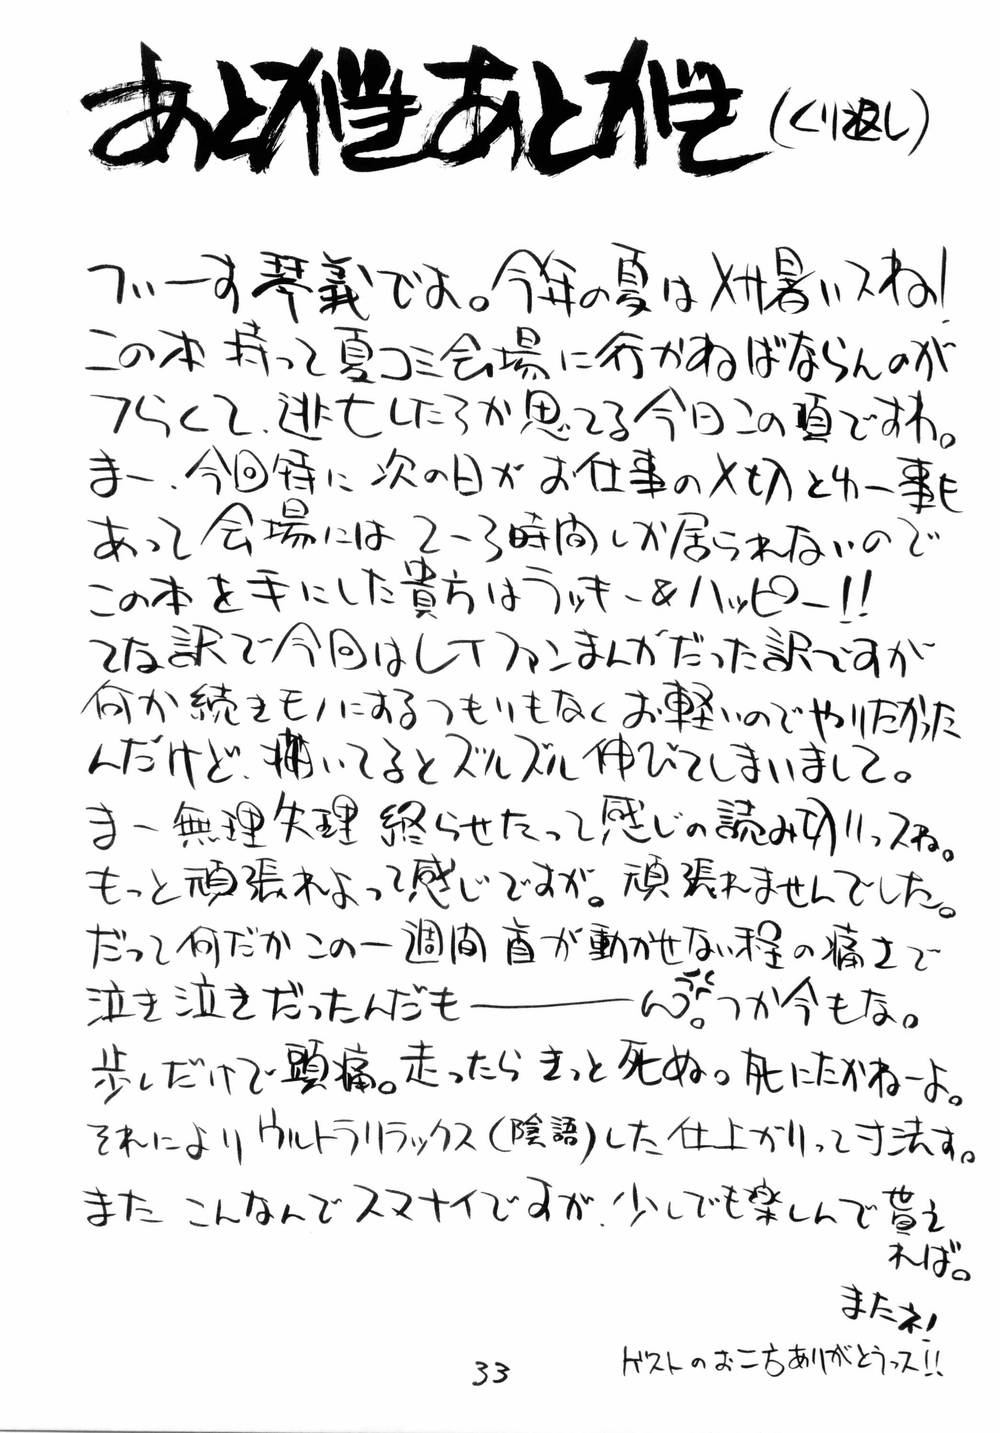 あとがきあとがき(くり返し)
ブいーす琴義でよ。今年の夏はメサ暑いスね!
この本持って夏コミ会場に行かねばならんのが
つらくて、逃亡したろか思てる今日この頃ですわ。
まー、今回特に次の日がお仕事の〆切とゆー事も
あって会場には2〜3時間しか居られないので
この本を手にした貴方はラッキー&ハッピー!!
てな訳で今回はLFファンまんがだった訳ですが
何か続きモノにするつもりもなくお軽いのでやりたかった
んだけど、描いてるとズルズル伸びてしまいまして。
まー無理矢理終らせたって感じの読み切りっスね。
もっと頑張れよって感じですが。頑張れませんでした。
だって何だかこの一週間首が動かせない程の痛さで
泣き泣きだったんだも――――ん。つか今もな。
歩くだけで頭痛。走ったらきっと死ぬ。死にたかねーよ。
それによりウルトラリラックス(陰語)した仕上がりって寸法す。
またこんなんでスマナイですが、少しでも楽しんで貰え
れば。
またネ!
ゲストのお二方ありがとうっス!!
33